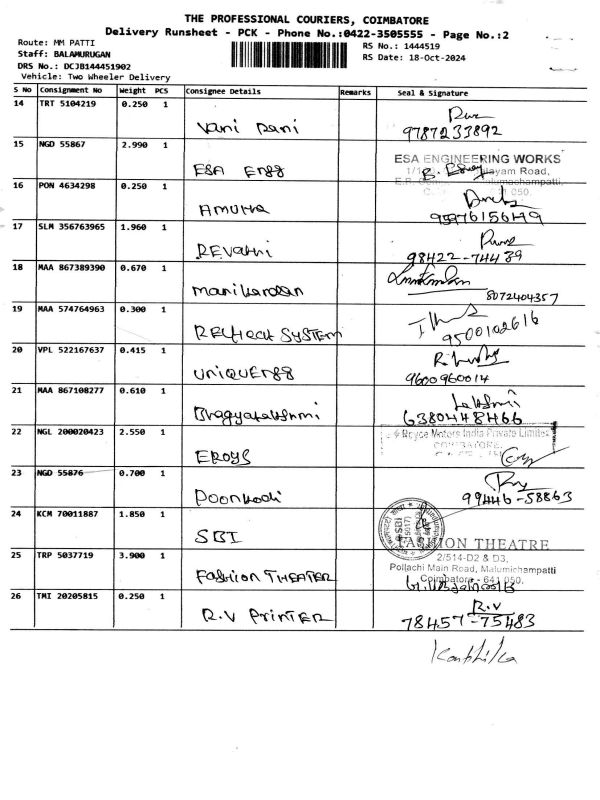 THE PROFESSIONAL COURIERS, COIMBATORE
Delivery Runsheet - PCK - Phone No.:0422-3505555 - Page No.:2
Route: MM PATTI
RS No.: 1444519
Staff: BALAMURUGAN
RS Date: 18-Oct-2024
DRS No.: DCJB144451902
Vehicle: Two Wheeler Delivery
S No Consignment No Weight PCS Consignee Details Remarks Seal & Signature
14 TRT 5104219 0.250 1
Vani Rani
9787233892
15 NGD 55867 2.990 1
ESA ENGINEERING WORKS
ESA Engg
16 PON 4634298 0.250 1
AMUTHA
17 SLM 356763965 1.960 1
REvathi
98422-74439
18 MAA 867389390 0.670 1
Manikandan
8072404357
19 MAA 574764963 0.300 1
SYSTEM
9500102616
20 VPL 522167637 0.415 1
UNIQUE Engg
9600960014
21 MAA 867108277 0.610 1
Bhagyalakshmi
Lakshmi
6380448466
22 NGL 200020423 2.550 1
Royce Motors India Private Limited
COIMBATORE
EROYS
23 NGD 55876 0.700 1
Poonkodi
99446-58863
24 KCM 70011887 1.850 1
SBI
SBI
25 TRP 5037719 3.900 1
FASHION THEATRE
2/514-D2 & D3,
Pollachi Main Road, Malumichampatti
Coimbatore - 641 050.
Fashion THEATER
26 TMI 20205815 0.250 1
R.V
R.V PrinTER
78457-75483